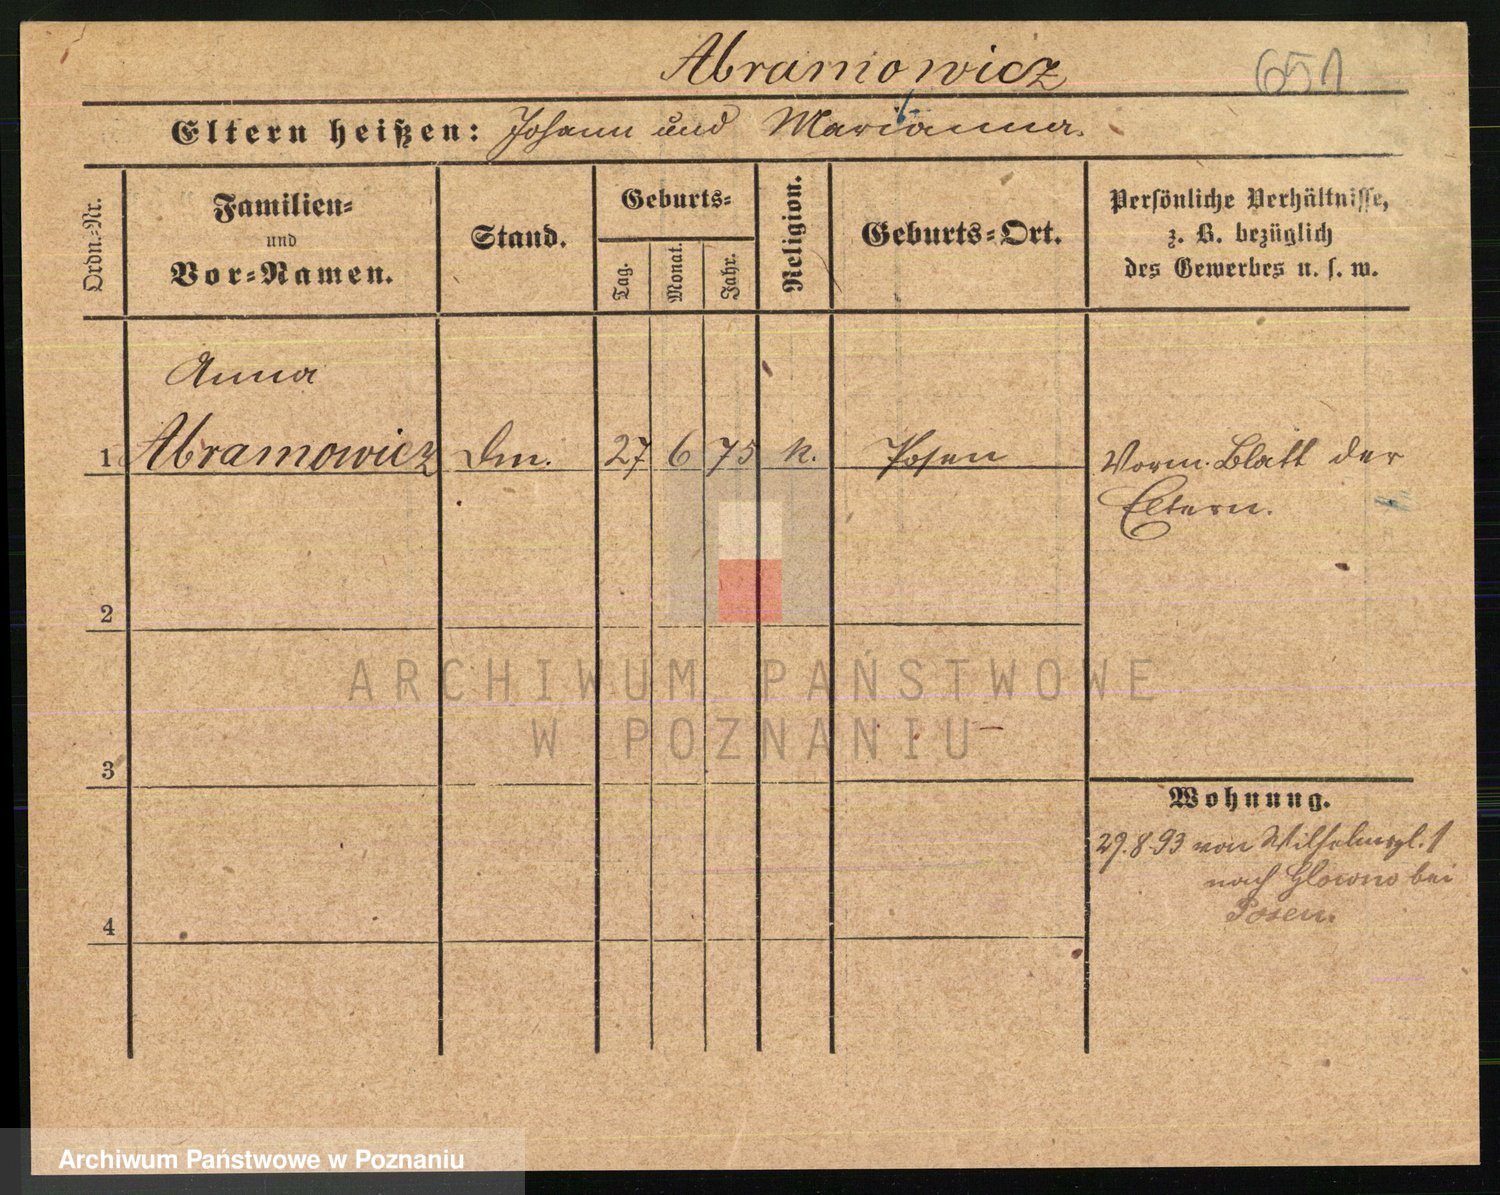 Abramowicz 651
Eltern heißen: Johann und Marianna.
Ordn.-Nr.
Familien-
und
Vor-Namen.
Stand.
Geburts-
Tag.
Monat.
Jahr.
Religion.
Geburts-Ort.
Persönliche Verhältnisse,
z. B. bezüglich
des Gewerbes u. s. w.
Anna
1 Abramowicz Dm. 27 6 75 k. Posen Vorm. Blatt der
Eltern.
2
ARCHIWUM PAŃSTWOWE
W POZNANIU
3
Wohnung.
29.8.93 von Wilhelmspl. 1
nach Glowno bei
Posen.
4
Archiwum Państwowe w Poznaniu